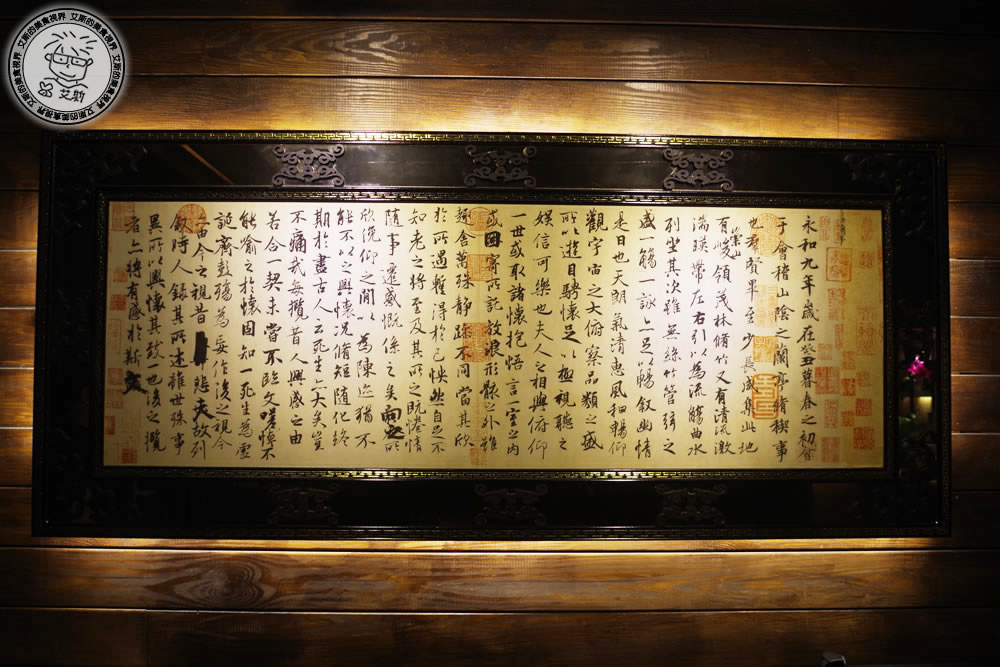 艾斯的美食視界 艾斯的美食視界 艾斯的美食視界 艾斯的美食視界
艾斯
永和九年歲在癸丑暮春之初會
于會稽山陰之蘭亭脩稧事
也群賢畢至少長咸集此地
有崇山峻領茂林脩竹又有清流激
湍暎帶左右引以為流觴曲水
列坐其次雖無絲竹管弦之
盛一觴一詠亦足以暢敘幽情
是日也天朗氣清惠風和暢仰
觀宇宙之大俯察品類之盛
所以遊目騁懷足以極視聽之
娛信可樂也夫人之相與俯仰
一世或取諸懷抱悟言一室之內
或因寄所託放浪形骸之外雖
趣舍萬殊靜躁不同當其欣
於所遇蹔得於己怏然自足不
知老之將至及其所之既惓情
隨事遷感慨係之矣向之所
欣俛仰之閒以為陳迹猶不
能不以之興懷況脩短隨化終
期於盡古人云死生亦大矣豈
不痛哉每攬昔人興感之由
若合一契未嘗不臨文嗟悼不
能喻之於懷固知一死生為虛
誕齊彭殤為妄作後之視今
亦由今之視昔悲夫故列
敘時人錄其所述雖世殊事
異所以興懷其致一也後之攬
者亦將有感於斯文